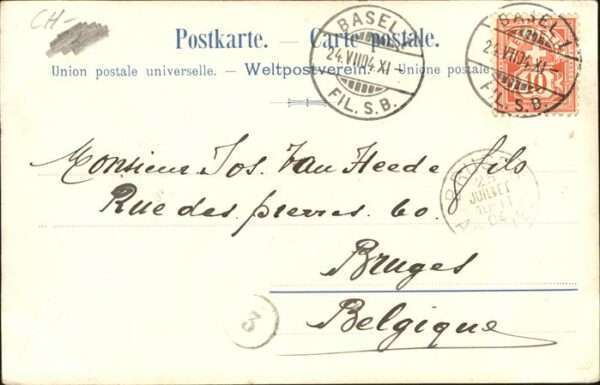 CH-
Postkarte. — Carte postale.
Union postale universelle. — Weltpostverein. — Unione postale
BASEL
24.VII.04.XI–
FIL.S.B.
BASEL
24.VII.04.XI–
FIL.S.B.
10
Monsieur Jos. Van Heede fils
Rue des pierres 60.
Bruges
Belgique
JUILLET
04
3